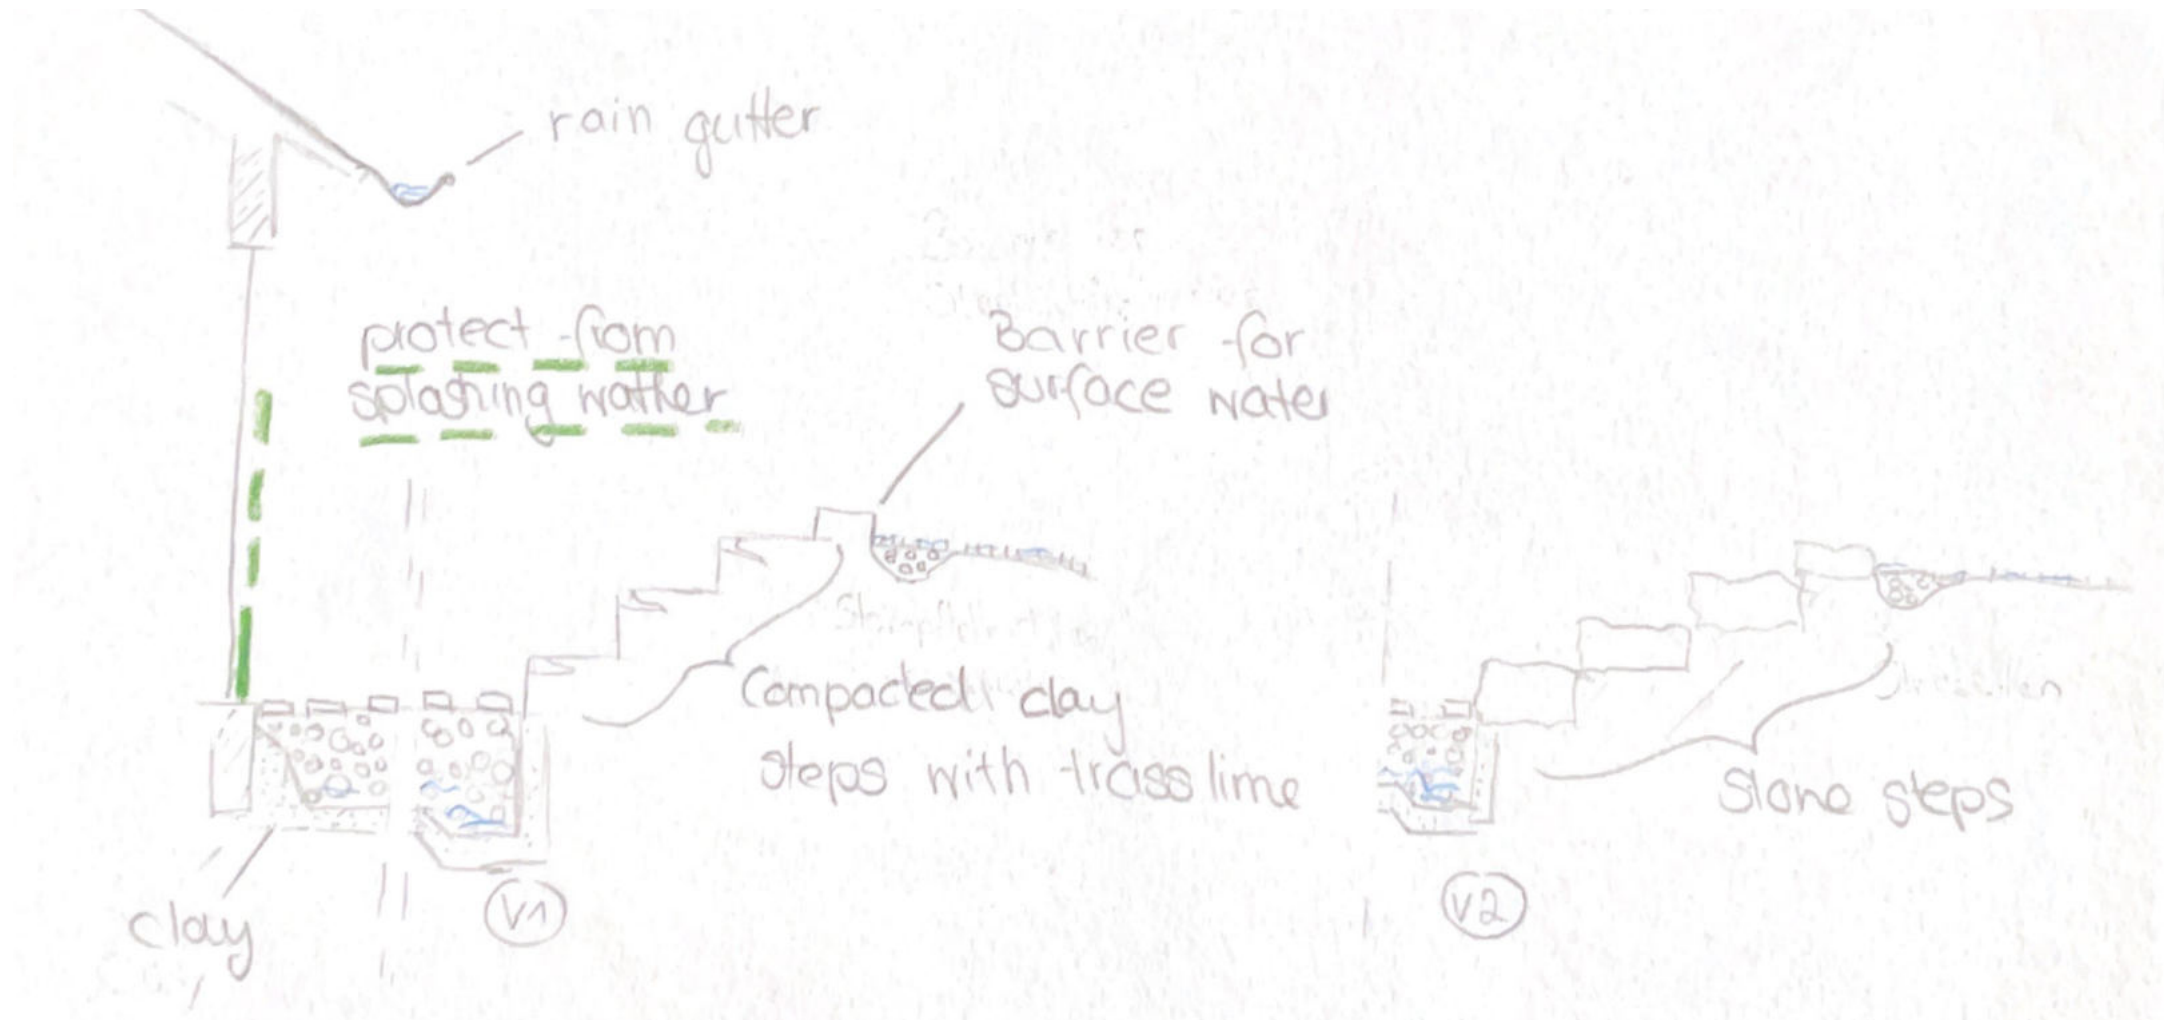 rain gutter
protect from
splashing wather
Barrier for
surface water
Compacted clay
steps with trass lime
clay
V1
Stone steps
V2